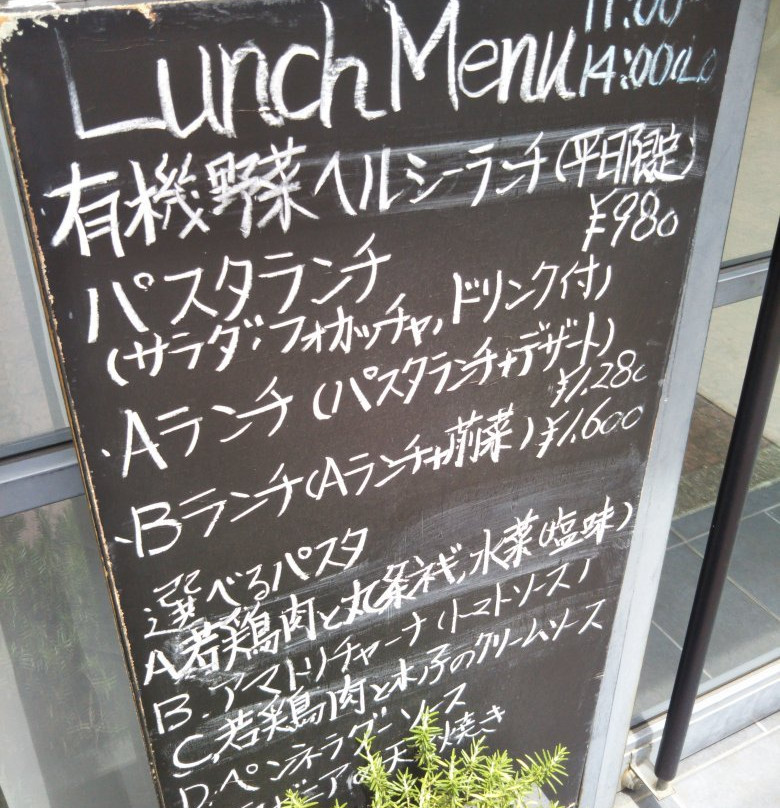 Lunch Menu 11:00~
14:00(L.O
有機野菜ヘルシーランチ(平日限定)
¥980
パスタランチ
(サラダ,フォカッチャ,ドリンク付)
・Aランチ(パスタランチ+デザート)
¥1,280
・Bランチ(Aランチ+前菜)¥1,600
選べるパスタ
A若鶏肉と九条ネギ,水菜(塩味)
B.アマトリチャーナ(トマトソース)
C.若鶏肉と木ノ子のクリームソース
D.ペンネラグーソース
焼き